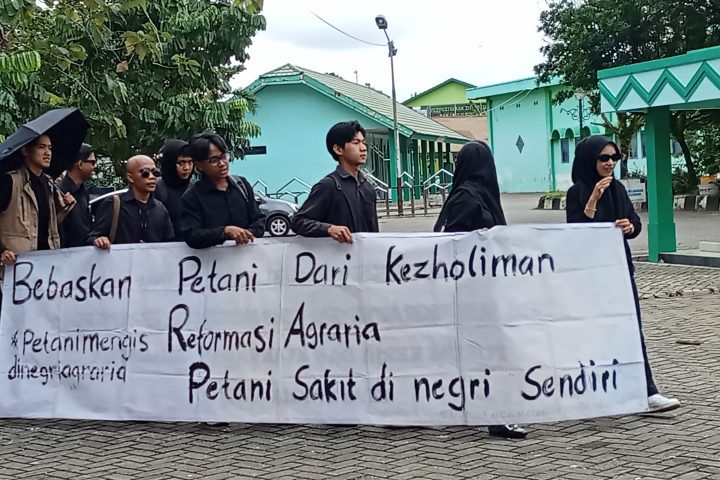 Bebaskan Petani Dari Kezholiman
*Petanimengis Reformasi Agraria
dinegriagraria
Petani Sakit di negri Sendiri